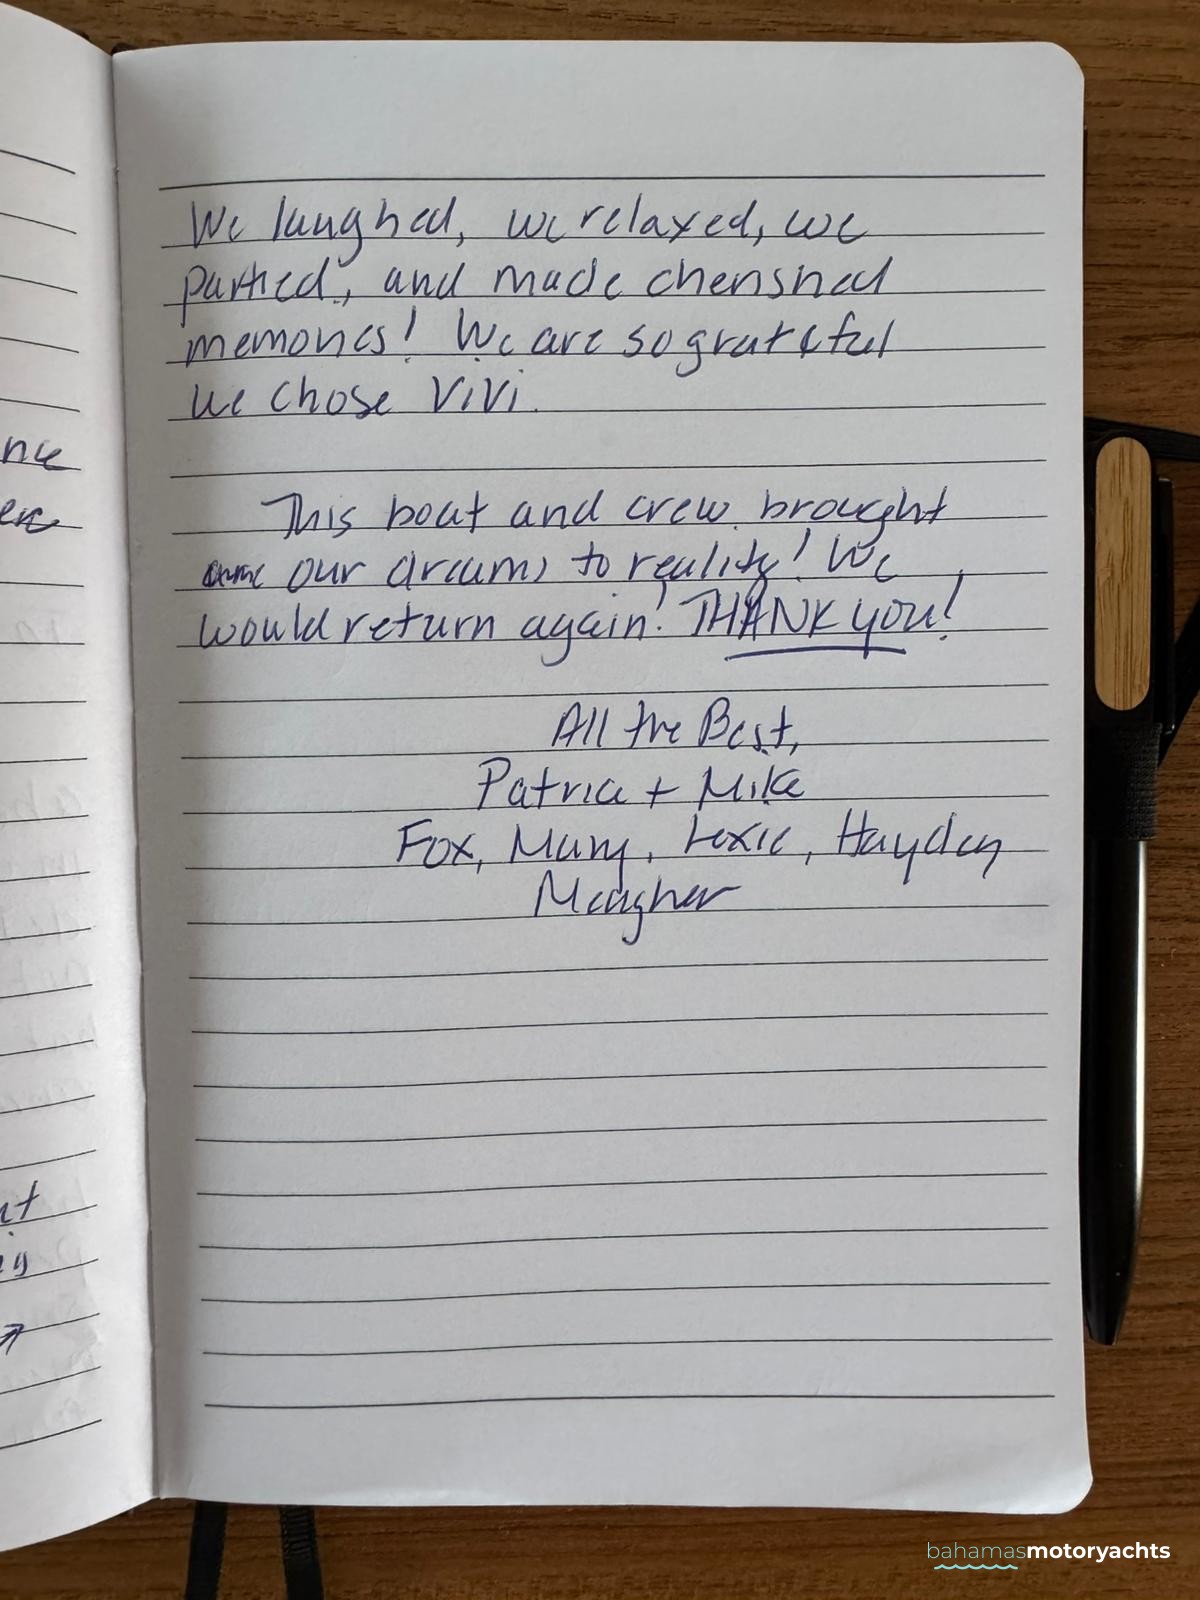 We laughed, we relaxed, we
partied, and made cherished
memories! We are so grateful
we chose ViVi.
This boat and crew brought
our dreams to reality! We
would return again! THANK YOU!
All the Best,
Patrice + Mike
Fox, Many, Lexie, Hayden
Meagher
nce
ut
bahamasmotoryachts